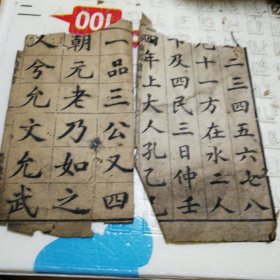 二三四五六七八
九十一方在水二人
下及四民三日仲壬
年上大人孔乙己
一品三公又四
朝元老乃如之
人兮允文允武
100